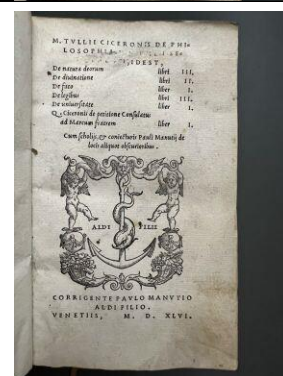 M. TVLLII CICERONIS DE PHI-
LOSOPHIA
IDEST,
De natura deorum libri III.
De diuinatione libri II.
De fato liber I.
De legibus libri III.
De uniuersitate liber I.
Q. Ciceronis de petitione Consulatus
ad Marcum fratrem liber I.
Cum scholijs, & coniecturis Pauli Manutij de
locis aliquot obscurioribus.
ALDI FILII
CORRIGENTE PAVLO MANVTIO
ALDI FILIO.
VENETIIS, M. D. XLVI.